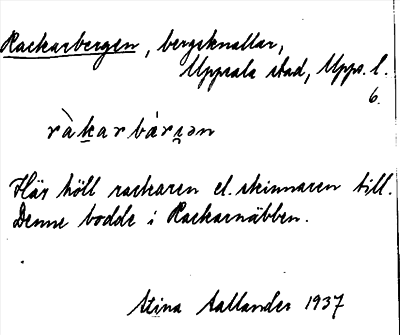 Rackarbergen, bergsknallar,
Uppsala stad, Upps. l.
6.
ràkarbárjən
Här höll rackaren el. skinnaren till.
Denne bodde i Rackarnäbben.
Stina Sallander 1937